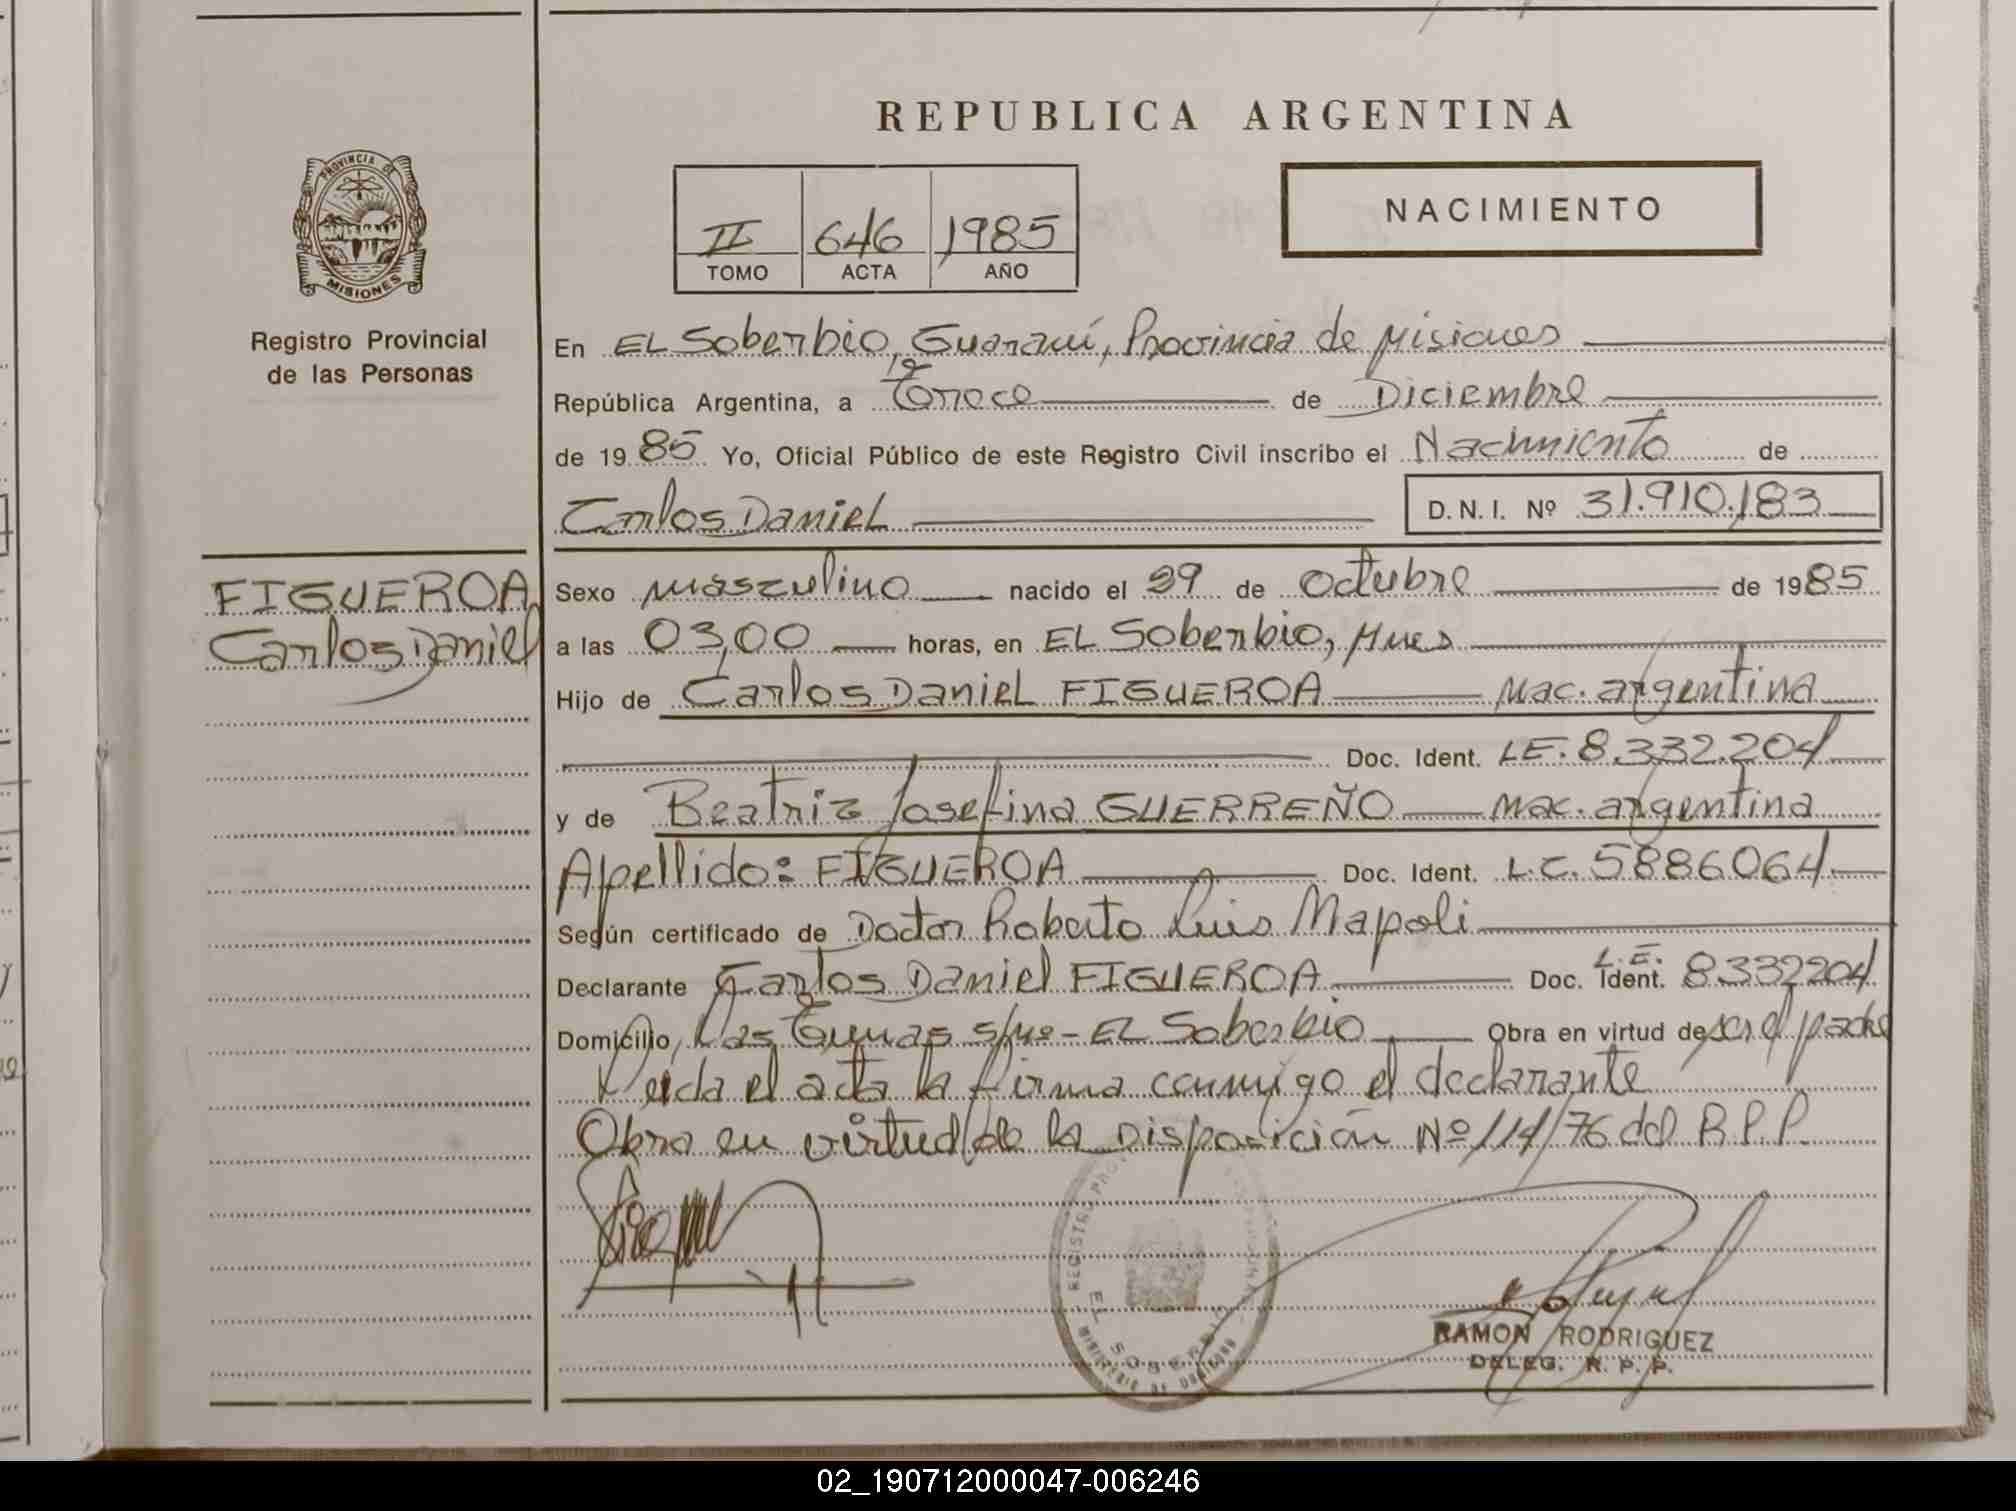 REPUBLICA ARGENTINA
PROVINCIA DE
MISIONES
Registro Provincial
de las Personas
II 646 1985
TOMO ACTA AÑO
NACIMIENTO
En EL Soberbio, Guaraní, Provincia de Misiones
República Argentina, a Trece de Diciembre
de 1985 Yo, Oficial Público de este Registro Civil inscribo el Nacimiento de
Carlos Daniel D. N. I. Nº 31.910.183
FIGUEROA
Carlos Daniel
Sexo masculino nacido el 29 de octubre de 1985
a las 03,00 horas, en EL Soberbio, Mnes
Hijo de Carlos Daniel FIGUEROA Nac. argentina
Doc. Ident. LE. 8.332.204
y de Beatriz Josefina GUERREÑO Nac. argentina
Apellido: FIGUEROA Doc. Ident. L.C. 5886064
Según certificado de Doctor Roberto Luis Napoli
Declarante Carlos Daniel FIGUEROA Doc. Ident. L.E. 8332204
Domicilio, Las Tunas s/nº - EL Soberbio Obra en virtud de ser el padre
Leida el acta la firma conmigo el declarante
Obra en virtud de la Disposición Nº 114/76 del R.P.P.
EL SOBERBIO
RAMON RODRIGUEZ
DELEG. R. P. P.
02_190712000047-006246